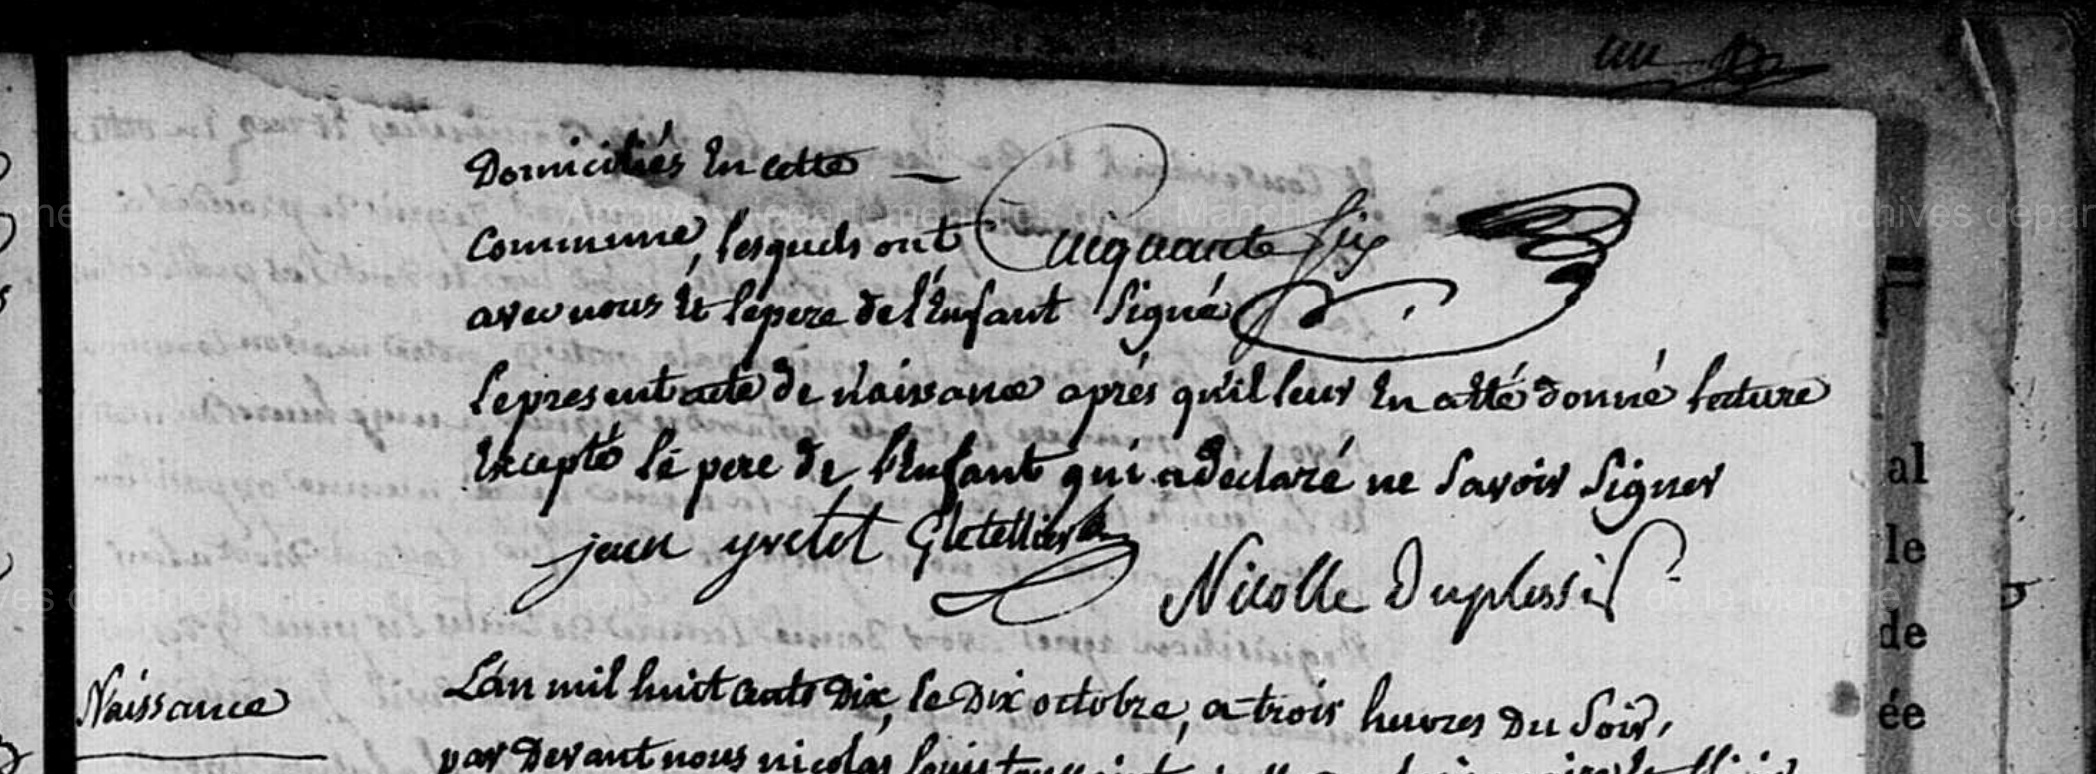 Domiciliés En cette
Commune, lesquels ont Cinquante Six
avec nous Et le pere de l'Enfant Signé
le present acte de Naissance aprés qu'il leur En a été donné lecture
Excepté le pere de l'Enfant qui a declaré ne Savoir Signer
jean yvetot G letellier
Nicolle Duplessis
Naissance
L'an mil huit cents Dix, le Dix octobre, a trois heures Du Soir,
par Devant nous nicolas louis toussaint
al
le
de
ée
Archives départementales de la Manche